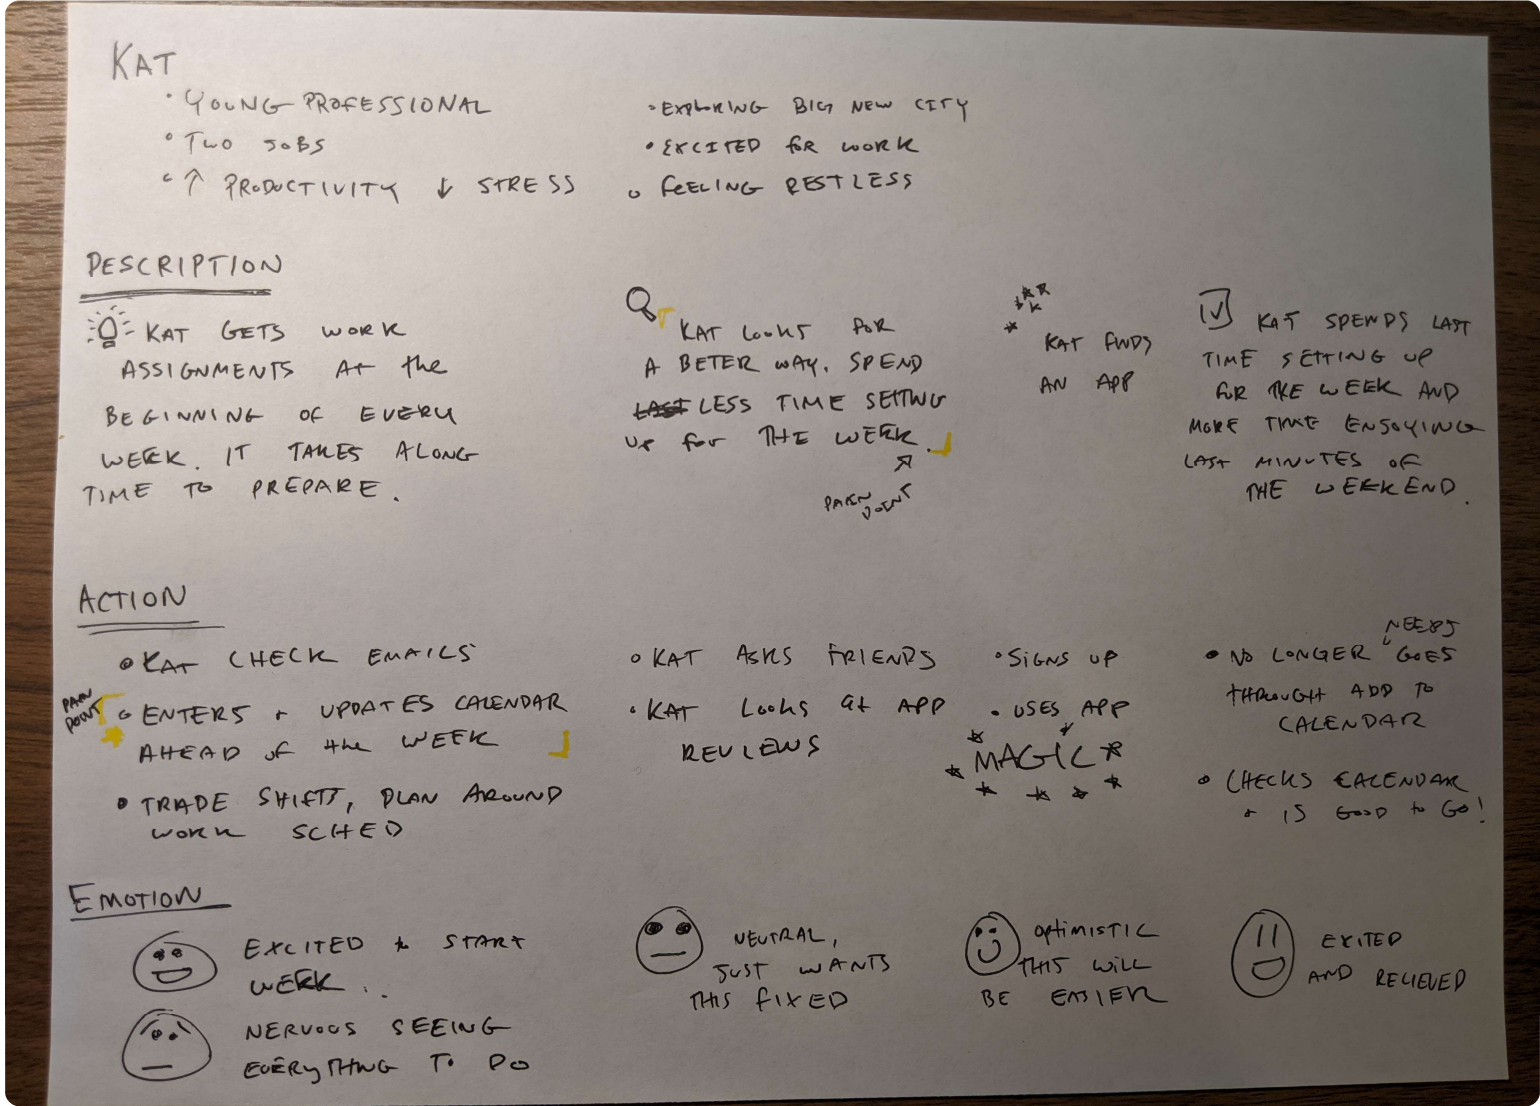 KAT
• YOUNG PROFESSIONAL
• TWO JOBS
• ↑ PRODUCTIVITY ↓ STRESS
• EXPLORING BIG NEW CITY
• EXCITED for WORK
• FEELING RESTLESS
DESCRIPTION
KAT GETS WORK
ASSIGNMENTS At the
BEGINNING OF EVERY
WEEK. IT TAKES ALONG
TIME TO PREPARE.
KAT Looks FOR
A BETER WAY. SPEND
LAST LESS TIME SETTING
UP for THE WEEK.
PAIN
POINT
KAT FINDS
AN APP
KAT SPENDS LAST
TIME SETTING UP
FOR THE WEEK AND
MORE TIME ENJOYING
LAST MINUTES OF
THE WEEKEND.
ACTION
• KAT CHECK EMAILS
PAIN
POINT
• ENTERS + UPDATES CALENDAR
AHEAD of the WEEK
• TRADE SHIFTS, PLAN AROUND
WORK SCHED
• KAT ASKS FRIENDS
• KAT Looks at APP
REVIEWS
• SIGNS UP
• USES APP
MAGIC
NEEDS
• NO LONGER GOES
THROUGH ADD TO
CALENDAR
• CHECKS CALENDAR
+ IS GOOD to GO!
EMOTION
EXCITED to START
WEEK..
NERVOUS SEEING
EVERYTHING TO DO
NEUTRAL,
JUST WANTS
THIS FIXED
OPTIMISTIC
THIS WILL
BE EASIER
EXITED
AND RELIEVED